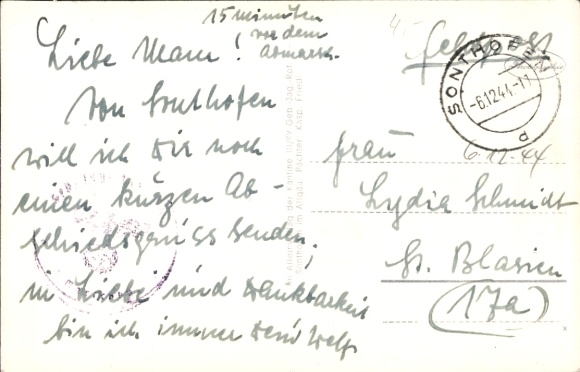 15 Minuten
vor dem
Abmarsch.
Liebe Mam!
Von Sonthofen
will ich Dir noch
einen kurzen Ab-
schiedsgruss senden,
in Liebe und Dankbarkeit
bin ich immer Dein Wolf
Feldpost
SONTHOFEN
-6.12.44.-11
d
6.12.44
Frau
Lydia Schmidt
St. Blasien
(17a)